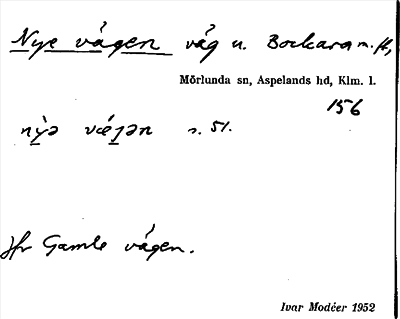 Nye vägen väg u. Bockara m. fl,
Mörlunda sn, Aspelands hd, Klm. l.
156
nỳə væ̀ɡən s. 51.
Jfr Gamle vägen.
Ivar Modéer 1952